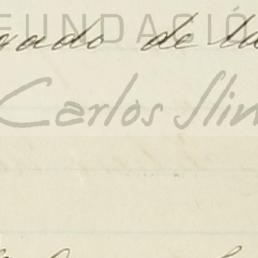 FUNDACIÓ
gado de la
Carlos Slim